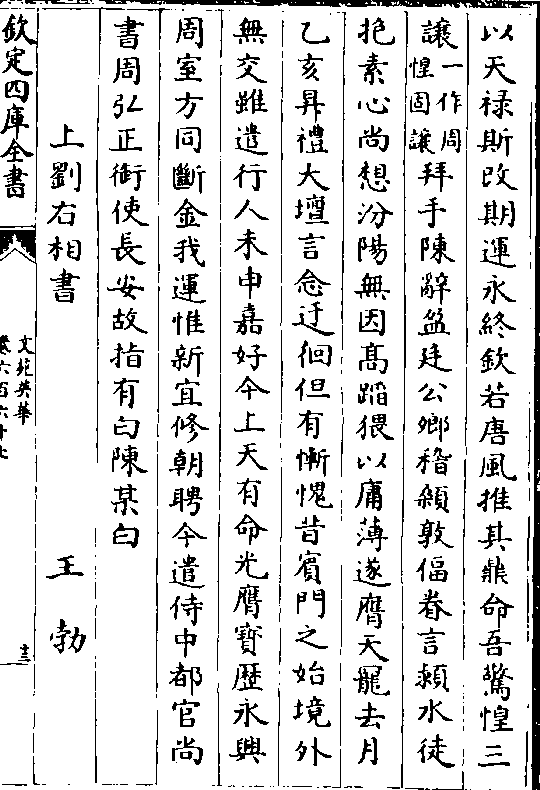 以天祿斯改期運永終欽若唐風推其鼎命吾驚惶三
讓一作周惶固讓拜手陳辭盈廷公鄉稽顙敦偪眷言潁水徒
抱素心尚想汾陽無因髙蹈猥以庸薄遂膺天寵去月
乙亥昇禮大壇言念迂徊但有慚愧昔賓門之始境外
無交雖遣行人未申嘉好今上天有命光膺寶歴永興
周室方同斷金我運惟新宜修朝聘今遣侍中都官尚
書周弘正銜使長安故指有白陳某白
上劉右相書 王勃
欽定四庫全書
文苑英華
卷六百六十七
十三